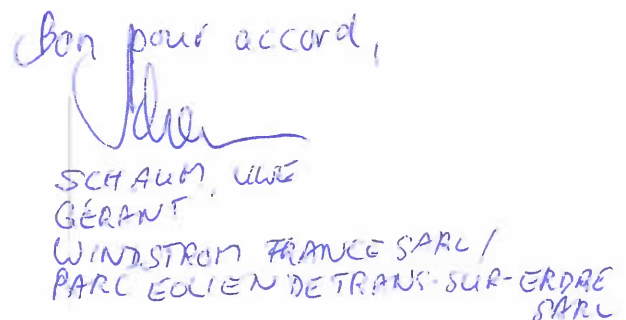 Bon pour accord,
SCHAUM UWE
GÉRANT
WINDSTROM FRANCE SARL /
PARC EOLIEN DE TRANS-SUR-ERDRE
SARL